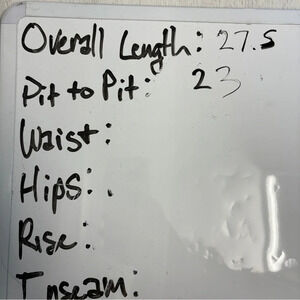 Overall Length: 27.5
Pit to Pit: 23
Waist:
Hips:
Rise:
Inseam: